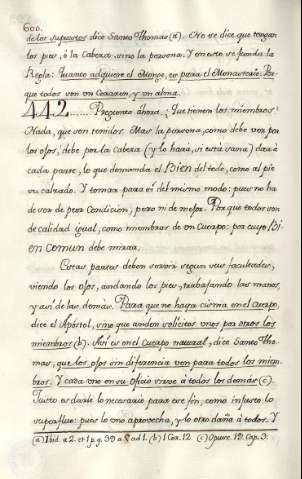 600.
de los supuestos dice Santo Thomas (a). No se dice que tengan
los pies, ò la Cabeza, sino la persona. Y en esto se funda la
Regla: Quanto adquiere el Monge, es para el Monasterio. Por
que todos son un Corazon, y un alma.
442...... Pregunto áhora: Que tienen los miembros?
Nada, que son tenidos. Mas la persona, como debe ver por
los ojos, debe por la Cabeza (y lo hará, si está sana) dar à
cada parte, lo que demanda el Bien del todo, como al pie
su calzado. Y tomar para sí del mismo modo: pues no ha
de ser de peor Condicion, pero ni de mejor. Por que todos son
de calidad igual, como miembros de un Cuerpo: por cuyo Bi-
en Comun debe mirar.
Estas partes deben servir segun sus facultades,
viendo los ojos, andando los pies, trabajando las manos,
y asi de las demás. Para que no haya cisma en el cuerpo,
dice el Apóstol, sino que anden sólicitos unos por otros los
miembros (b). Asi es en el cuerpo natural, dice Santo Tho-
mas, que los ojos sin diferencia ven para todos los miem-
bros. Y cada uno en su oficio sirve à todos los demás (c).
Justo es darle lo necesario para ese fin, como injusto lo
superfluo: pues lo uno aprovecha, y lo otro daña à todos. Y
(a) Ibid. a 2. et 1 p. q. 39 a 5 ad 1. (b) 1 Cor. 12. (c) Opusc. 19. Cap. 3.